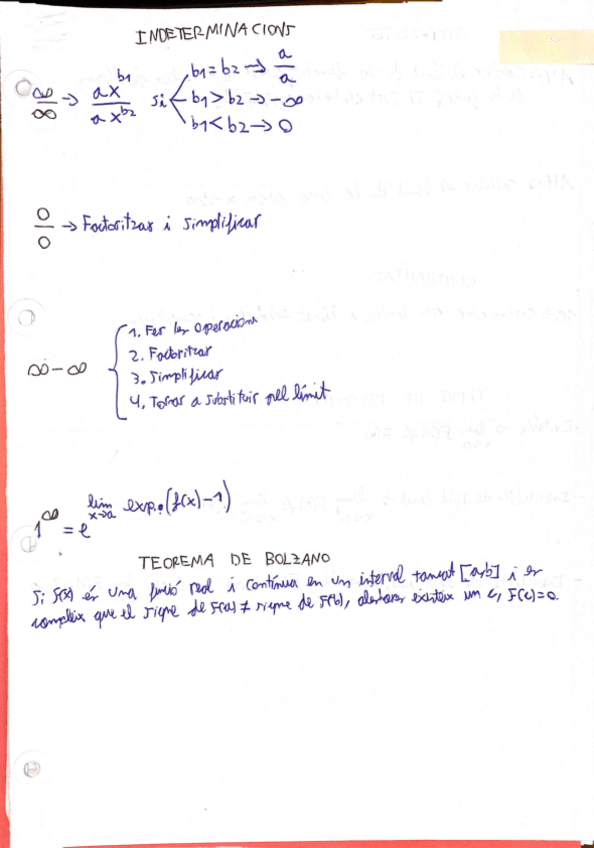 INDETERMINACIONS
∞/∞ → ax^b1 / ax^b2 si
b1 = b2 → a/a
b1 > b2 → -∞
b1 < b2 → 0
0/0 → Factoritzar i simplificar
∞ - ∞
1. Fer les operacions
2. Factoritzar
3. Simplificar
4. Tornar a substituir pel límit
1^∞ = e^lim x→a exp·(f(x)-1)
TEOREMA DE BOLZANO
Si f(x) és una funció real i contínua en un interval tancat [a,b] i es
compleix que el signe de F(a) ≠ signe de F(b), aleshores existeix un c, F(c)=0.